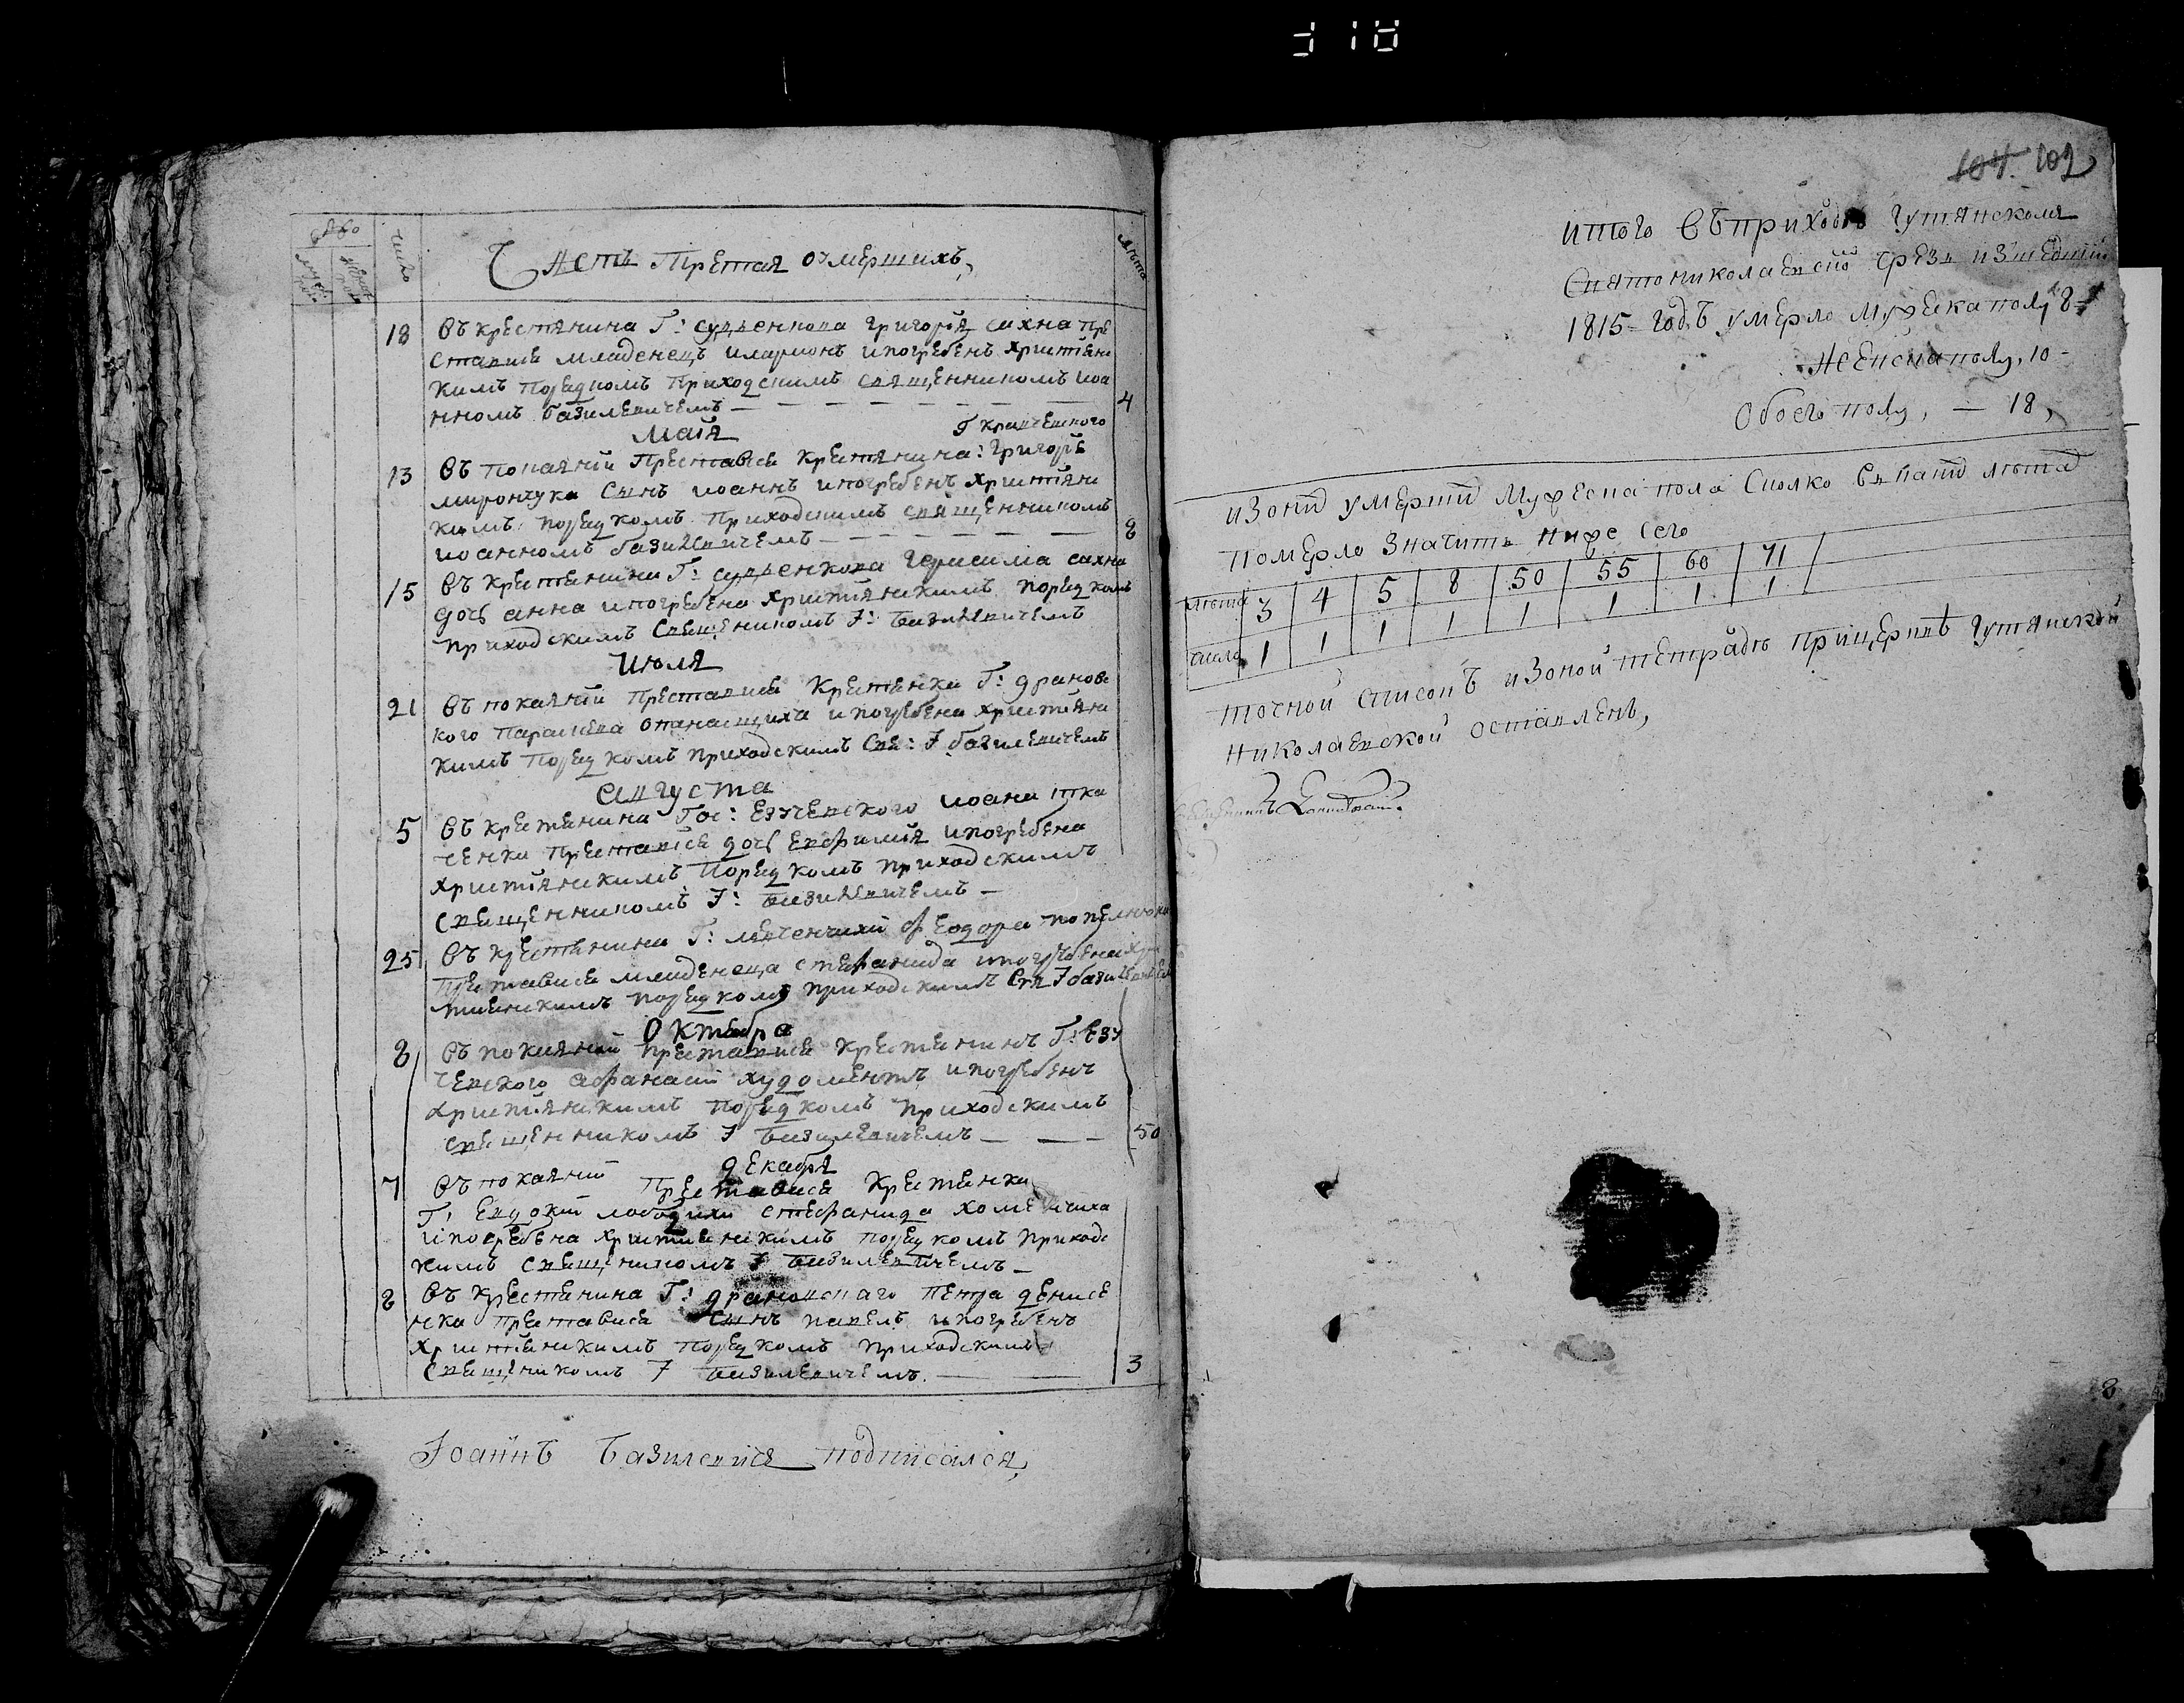 104. 102
число
лѣта
Часть Третая оумершихъ,
18 въ крестянина Г: судденкова григорїя сахна пре
ставися младенецъ иларионъ и погребенъ христїянс
кимъ порядкомъ приходскимъ священникомъ иоа
нномъ базилевичемъ — 4
маїя
13 въ покаянїи преставися крестянина: григорїя
мирончука сынъ иоаннъ и погребенъ христїянс
кимъ порядкомъ приходскимъ священникомъ
иоанномъ базилевичемъ — 8
15 въ крестянина Г: судденкова герасима сахна
дочь анна и погребена христїянскимъ порядкомъ
приходскимъ священикомъ I: базилевичемъ
июля
21 въ покаянїи преставися крестянка Г: драновс
кого параскева опанасциха и погребена христїянс
кимъ порядкомъ приходскимъ свя: I базилевичемъ
августа
5 въ крестянина Гос: езучевского иоана тка
ченка преставися дочь евфимїя и погребена
христїянскимъ порядкомъ приходскимъ
священникомъ I: базилевичемъ —
25 въ крестянина Г: феодора
преставися младенеца стефанида и погребена хри
стиянскимъ порядкомъ приходскимъ свя I базилевичем
октября
8 въ покаянїи преставися крестянинъ Г: езу
чевского афанасїи худолентъ и погребенъ
христїянскимъ порядкомъ приходскимъ
священникомъ I базилевичемъ — 50
декабря
7 въ покаянїи преставися крестянка
Г: евдокїи стефанида хоменчиха
и погребена християнскимъ порядкомъ приходс
кимъ священикомъ I базилевичемъ —
8 въ крестянина Г: драновскаго петра денисе
нка преставися сынъ павелъ и погребенъ
христїянскимъ порядкомъ приходскимъ
священикомъ I базилевичемъ. — 3
Iоаннъ Базилевичъ подписался,
итого въ приходѣ гутянском
святониколаевской чрезъ изшедшїй
1815 = годъ умерло мужеска полу 8
женска полу, 10 -
обоего полу, — 18,
изъ онихъ умершихъ мужеска пола сколко въ какихъ лѣтахъ
померло значитъ ниже сего
лѣта 3 4 5 8 50 55 60 71
число 1 1 1 1 1 1 1 1
точной списокъ изъ оной тетради при церквѣ гутянской
николаевской оставленъ,